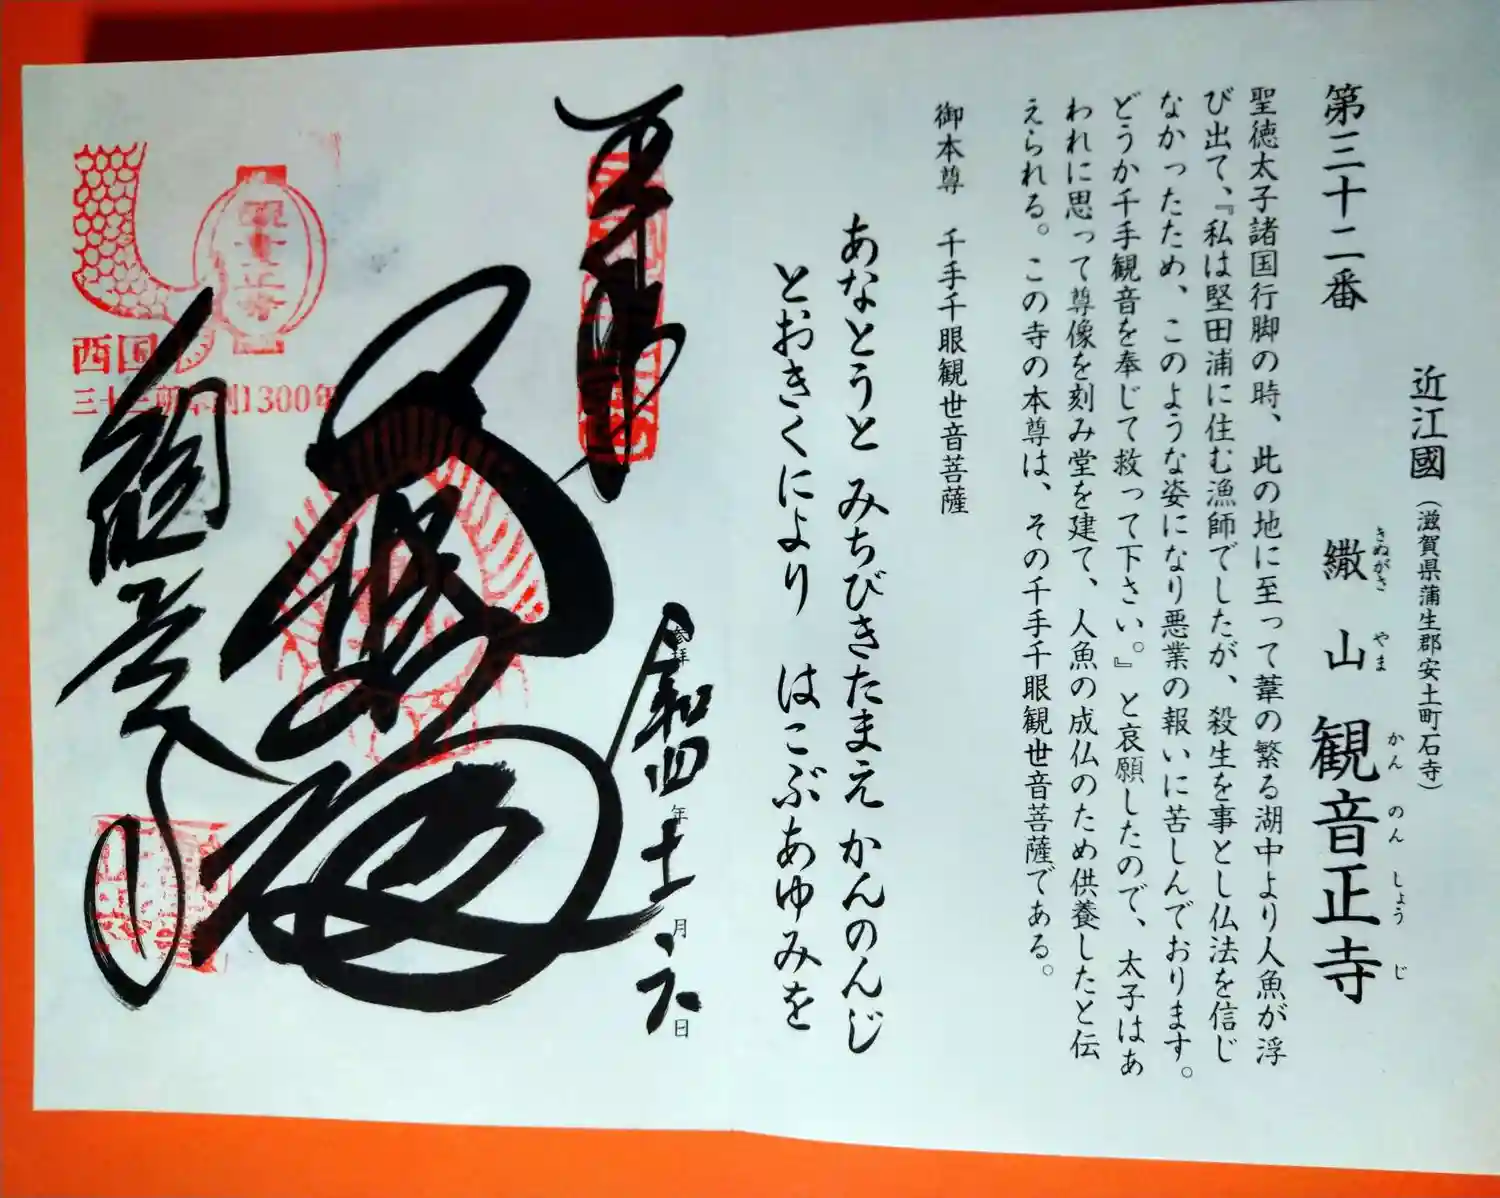 近江國(滋賀県蒲生郡安土町石寺)
第三十二番 繖山 観音正寺
きぬがさ やま かん のん しょう じ
聖徳太子諸国行脚の時、此の地に至って葦の繁る湖中より人魚が浮
び出て、『私は堅田浦に住む漁師でしたが、殺生を事とし仏法を信じ
なかったため、このような姿になり悪業の報いに苦しんでおります。
どうか千手観音を奉じて救って下さい。』と哀願したので、太子はあ
われに思って尊像を刻み堂を建て、人魚の成仏のため供養したと伝
えられる。この寺の本尊は、その千手千眼観世音菩薩である。
御本尊 千手千眼観世音菩薩
あなとうと みちびきたまえ かんのんじ
とおきくにより はこぶあゆみを
奉拝
参拝 令和四年十一月六日
観音正寺
西国
三十三所草創1300年